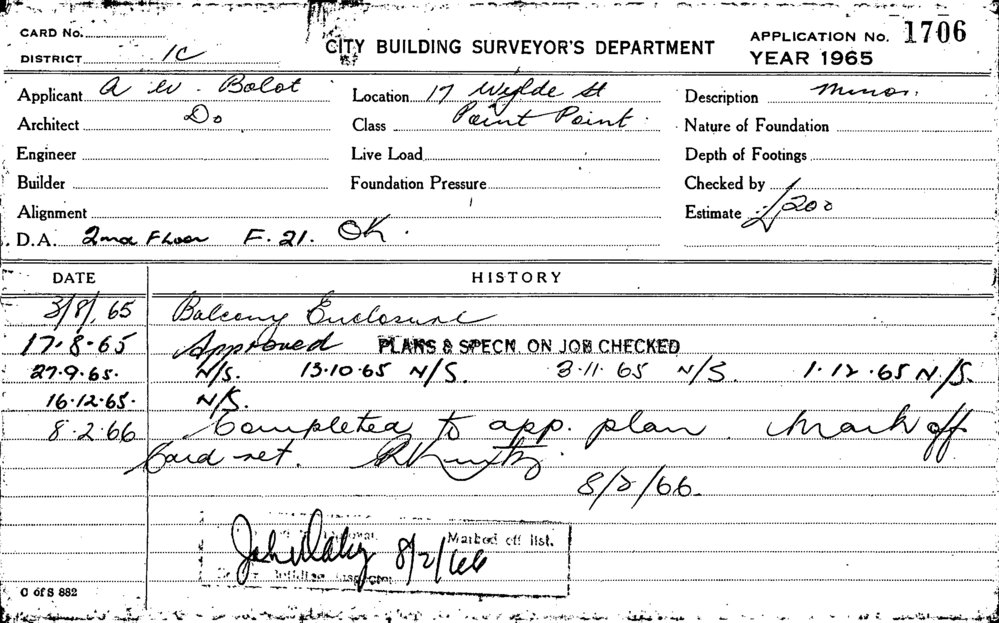 CARD No.
DISTRICT 1C
CITY BUILDING SURVEYOR'S DEPARTMENT
APPLICATION No. 1706
YEAR 1965
Applicant A W. Bolot
Location 17 Wylde St
Description Minor.
Architect Do
Class Point Point.
Nature of Foundation
Engineer
Live Load
Depth of Footings
Builder
Foundation Pressure
Checked by
Alignment
Estimate £200
D.A. 2nd Floor F. 21. OK.
DATE HISTORY
3/8/65 Balcony Enclosure
17.8.65 Approved PLANS & SPECN. ON JOB CHECKED
27.9.65. N/S. 13.10.65 N/S. 3.11.65 N/S. 1.12.65 N/S.
16.12.65. N/S.
8.2.66 Completed to app. plan. Mark off
Card ret.
8/2/66.
Marked off list.
John Daley 8/2/66
Building Inspector
C of S 882